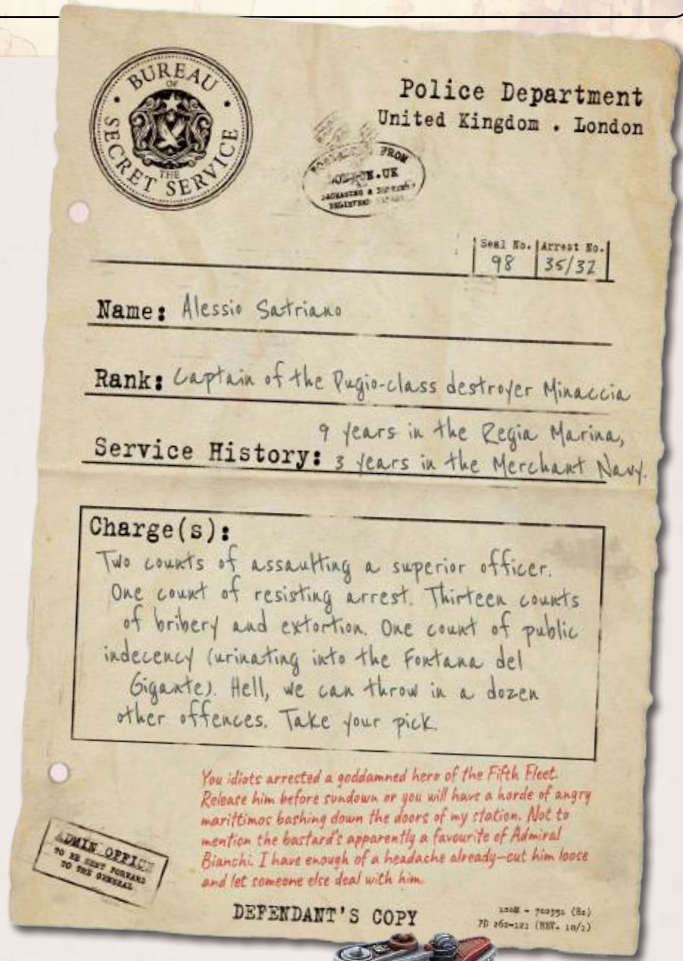 BUREAU
OF
THE
SECRET SERVICE
Police Department
United Kingdom . London
FROM
Seal No. Arrest No.
98 35/32
Name: Alessio Satriano
Rank: Captain of the Pugio-class destroyer Minaccia
Service History: 9 years in the Regia Marina,
3 years in the Merchant Navy.
Charge(s):
Two counts of assaulting a superior officer.
One count of resisting arrest. Thirteen counts
of bribery and extortion. One count of public
indecency (urinating into the Fontana del
Gigante). Hell, we can throw in a dozen
other offences. Take your pick.
You idiots arrested a goddamned hero of the Fifth Fleet.
Release him before sundown or you will have a horde of angry
marittimos bashing down the doors of my station. Not to
mention the bastard's apparently a favourite of Admiral
Bianchi. I have enough of a headache already—cut him loose
and let someone else deal with him.
ADMIN OFFICE
TO BE SENT FORWARD
TO THE GENERAL
DEFENDANT'S COPY
(REV. 10/1)